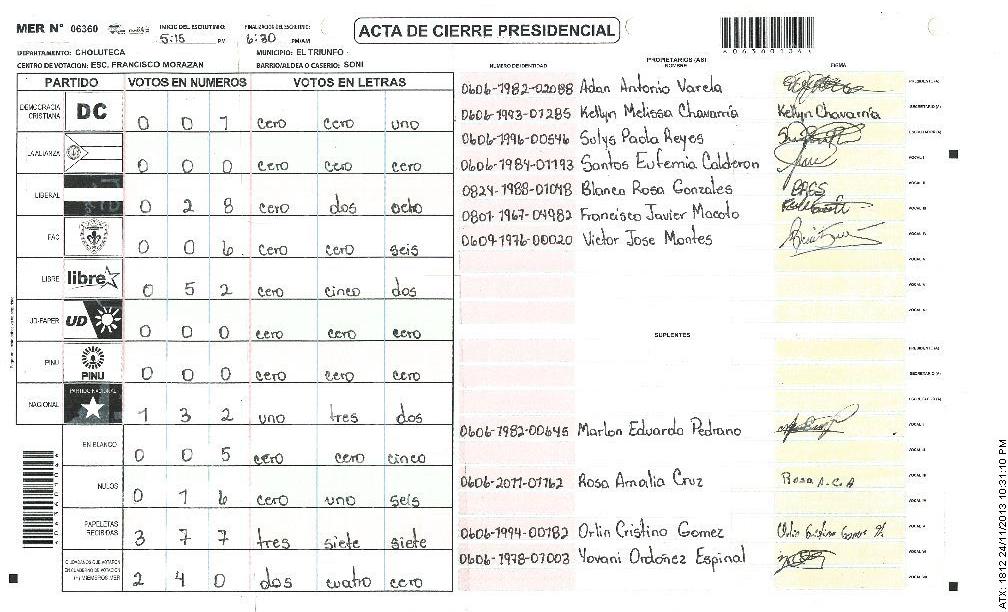 MER N° 06360
INICIO DEL ESCRUTINIO: 5:15 PM
FINALIZACION DEL ESCRUTINIO: 6:30 PM/AM
ACTA DE CIERRE PRESIDENCIAL
DEPARTAMENTO: CHOLUTECA
MUNICIPIO: EL TRIUNFO
CENTRO DE VOTACION: ESC. FRANCISCO MORAZAN
BARRIO/ALDEA O CASERIO: SONI
PARTIDO VOTOS EN NUMEROS VOTOS EN LETRAS
DEMOCRACIA CRISTIANA DC 0 0 1 cero cero uno
LA ALIANZA 0 0 0 cero cero cero
LIBERAL 0 2 8 cero dos ocho
FAC 0 0 6 cero cero seis
LIBRE libre 0 5 2 cero cinco dos
UD-FAPER UD 0 0 0 cero cero cero
PINU PINU 0 0 0 cero cero cero
NACIONAL PARTIDO NACIONAL 1 3 2 uno tres dos
EN BLANCO 0 0 5 cero cero cinco
NULOS 0 1 6 cero uno seis
PAPELETAS RECIBIDAS 3 7 7 tres siete siete
CIUDADANOS QUE VOTARON EN CUADERNO DE VOTACION MIEMBROS MER 2 4 0 dos cuatro cero
NUMERO DE IDENTIDAD PROPIETARIOS (AS) NOMBRE FIRMA
0606-1982-02088 Adan Antonio Varela PRESIDENTE(A)
0606-1993-01285 Kellyn Melissa Chavarría Kellyn Chavarría SECRETARIO(A)
0606-1996-00546 Solys Paola Reyes ESCRUTADOR(A)
0606-1984-01193 Santos Eufemia Calderon VOCAL I
0824-1988-01048 Blanca Rosa Gonzales VOCAL II
0801-1967-04982 Francisco Javier Macoto VOCAL III
0609-1976-00020 Victor Jose Montes VOCAL IV
VOCAL V
VOCAL VI
VOCAL VII
SUPLENTES
PRESIDENTE(A)
SECRETARIO(A)
ESCRUTADOR(A)
0606-1982-00645 Marlon Eduardo Pedrano VOCAL I
VOCAL II
0606-2011-01762 Rosa Amalia Cruz Rosa A.C.A VOCAL III
VOCAL IV
0606-1994-00782 Orlin Cristino Gomez VOCAL V
0606-1978-01003 Yovani Ordoñez Espinal VOCAL VI
VOCAL VII
ATX: 1812 24/11/2013 10:31:10 PM